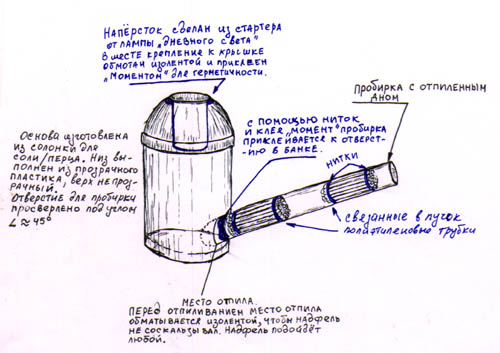 Напёрсток сделан из стартера
от лампы „дневного света"
в месте крепление к крышке
обмотан изолентой и приклеен
„Моментом" для герметичности.
Пробирка с отпиленным
дном
с помощью ниток
и клея „момент" пробирка
приклейвается к отверст-
-ию в банке.
Основа изготовлена
из солонки для
соли/перца. Низ вы-
полнен из прозрачного
пластика, верх не проз-
рачный.
Отверстие для пробирки
просверлено под углом
∠≈45°
нитки
связанные в пучок
полиэтиленовые трубки
место отпила.
Перед отпиливанием место отпила
обматывается изолентой, чтобы надфель
не соскальзывал. Надфель подойдёт
любой.